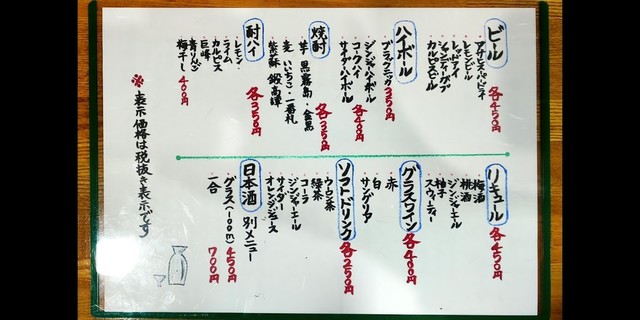 ビール 各450円
アサヒスーパードライ
レモンビール
レッドアイ
シャンディーガフ
カルピスビール
ハイボール
ブラックニッカ 350円
ジンジャーハイボール
コークハイ
サイダーハイボール 各400円
焼酎
芋 黒霧島・金黒
麦 いいちこ・一番札
紫蘇 鍛高譚 各350円
酎ハイ 各350円
レモン
ライム
カルピス
巨峰
青りんご
梅干し 400円
リキュール 各450円
梅酒
桃酒
ジンジャーエール
柚子
スウィーティ
グラスワイン 各400円
赤
白
サングリーア
ソフトドリンク 各250円
ウーロン茶
緑茶
コーラ
ジンジャーエール
サイダー
オレンジジュース
日本酒 別メニュー
グラス(100ml) 450円
一合 700円
※表示価格は税抜き表示です